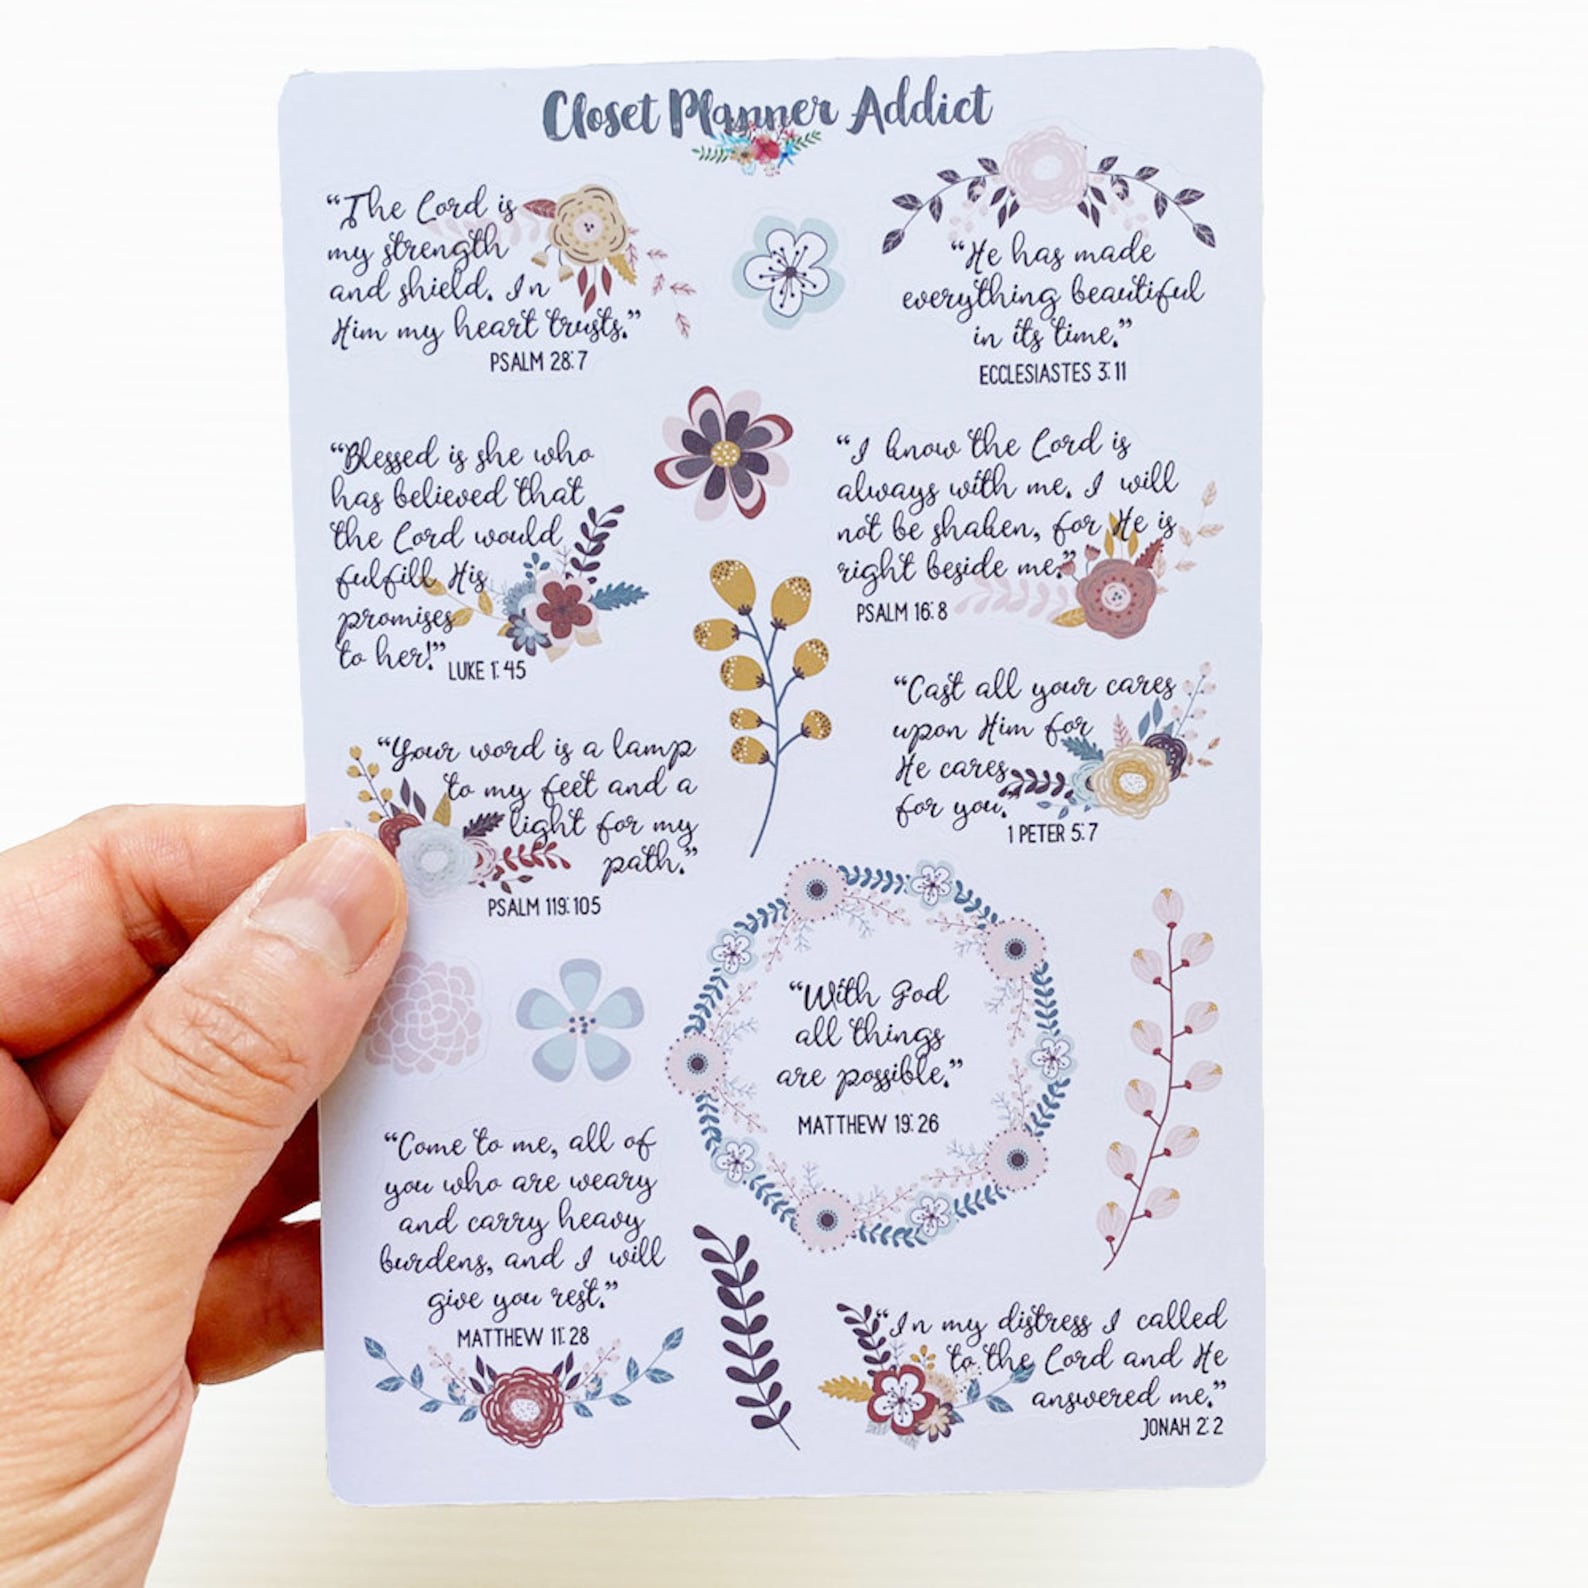 Closet Planner Addict
“The Lord is
my strength
and shield. In
Him my heart trusts.”
PSALM 28:7
“He has made
everything beautiful
in its time.”
ECCLESIASTES 3:11
“Blessed is she who
has believed that
the Lord would
fulfill His
promises
to her!”
LUKE 1:45
“I know the Lord is
always with me. I will
not be shaken, for He is
right beside me.”
PSALM 16:8
“Your word is a lamp
to my feet and a
light for my
path.”
PSALM 119:105
“Cast all your cares
upon Him for
He cares
for you.”
1 PETER 5:7
“With God
all things
are possible.”
MATTHEW 19:26
“Come to me, all of
you who are weary
and carry heavy
burdens, and I will
give you rest.”
MATTHEW 11:28
“In my distress I called
to the Lord and He
answered me.”
JONAH 2:2